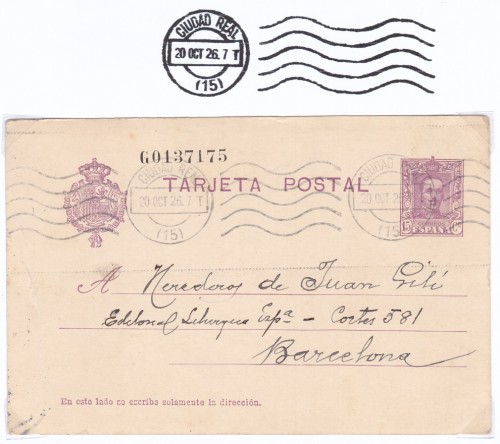 CIUDAD REAL
20 OCT 26. 7 T
(15)
G0137175
CIUDAD REAL
20 OCT 26. 7 T
(15)
TARJETA POSTAL
CIUDAD REAL
20 OCT 26. 7 T
(15)
15 Cs
ESPAÑA
A Herederos de Juan Gili
Editorial Liturgica Espª - Cortes 581
Barcelona
En esto lado no escriba solamente la dirección.